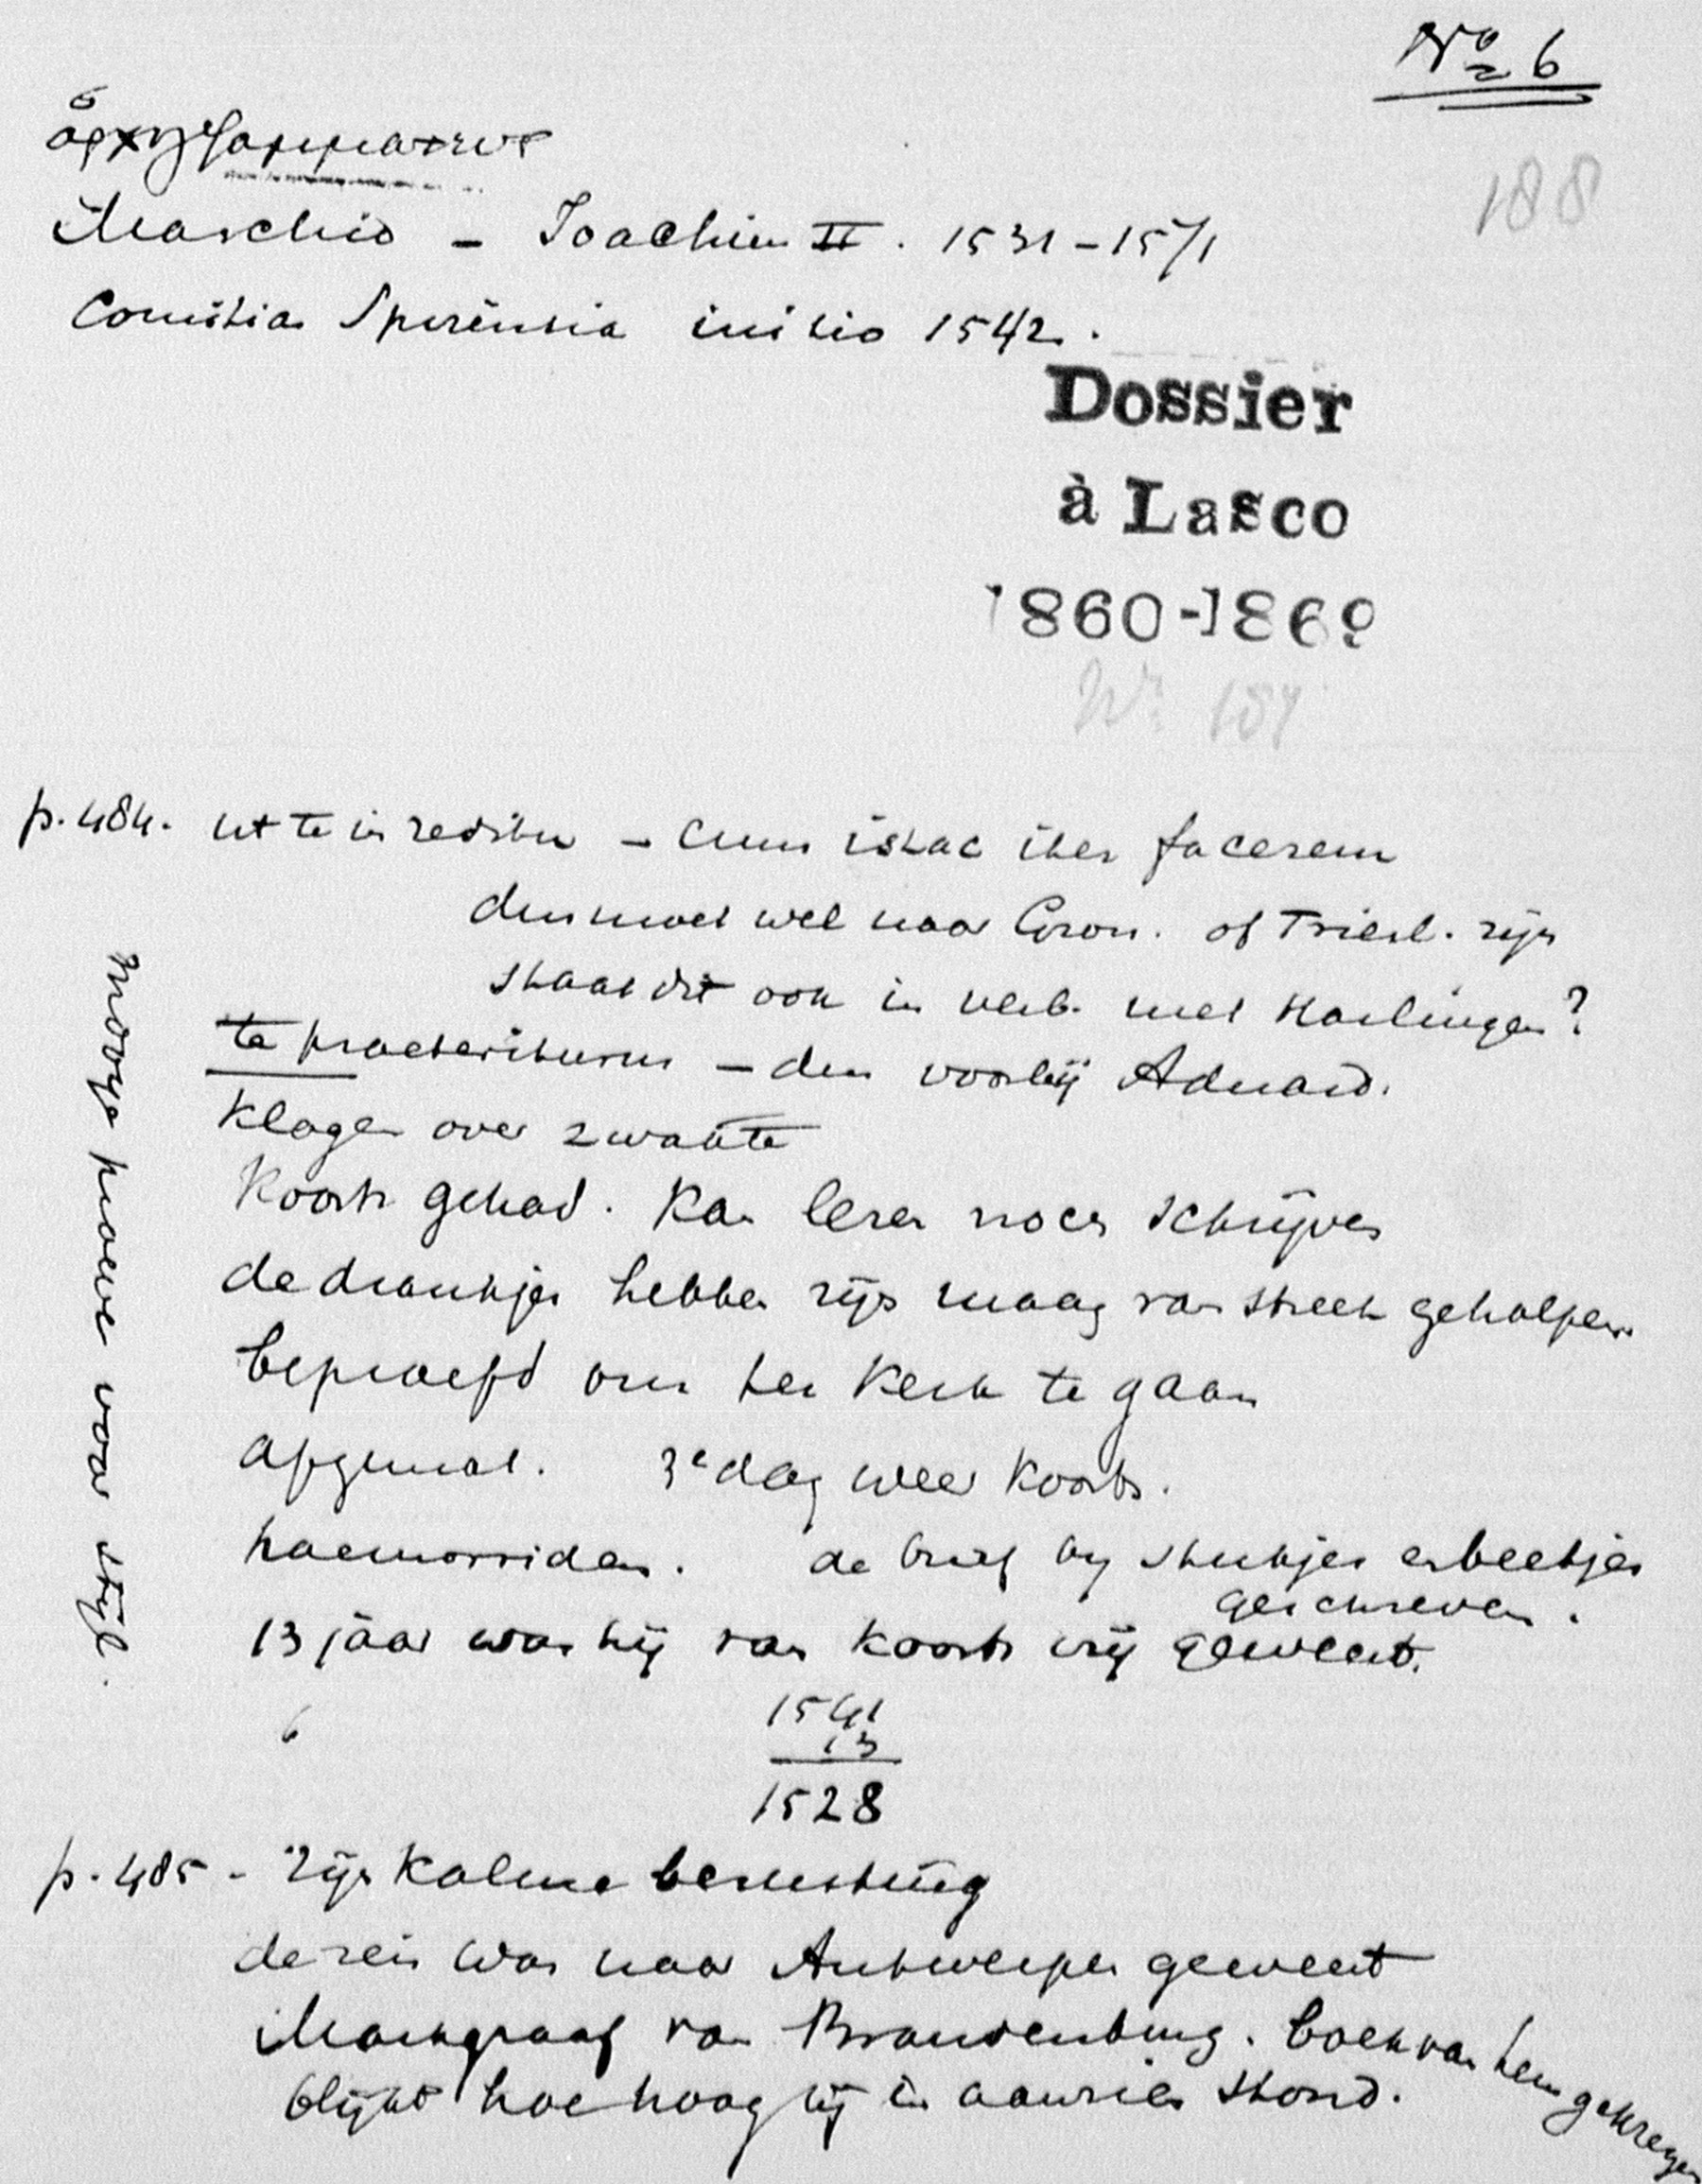 No 6
188
Marchio – Joachim II. 1531–1571
Comitia Spirensia initio 1542.
Dossier
à Lasco
1860-1869
Nr. 184
p. 484. ut te in reditu – Cum istac iter facerem
dus moet wel naar Gron. of Friesl. zijn
staat dit ook in verb. met Harlingen?
te praeteriturus – dus voorbij Aduard.
Klagen over zwakte
Koorts gehad. Kan lezen noch schrijven
de drankjes hebben zijn maag van streek geholpen
beproefd om ter kerk te gaan
afgemat. 3e dag weer koorts.
haemorriden. de brief by stukjes en beetjes
geschreven.
13 jaar was hij van koorts vrij geweest.
1541
13
1528
p. 485 - Zijn kalme berusting
de reis was naar Antwerpen geweest
Markgraaf van Brandenburg. boek van hem gekregen
blijkt hoe hoog hij in aanzien stond.
mooye proeve voor stijl.